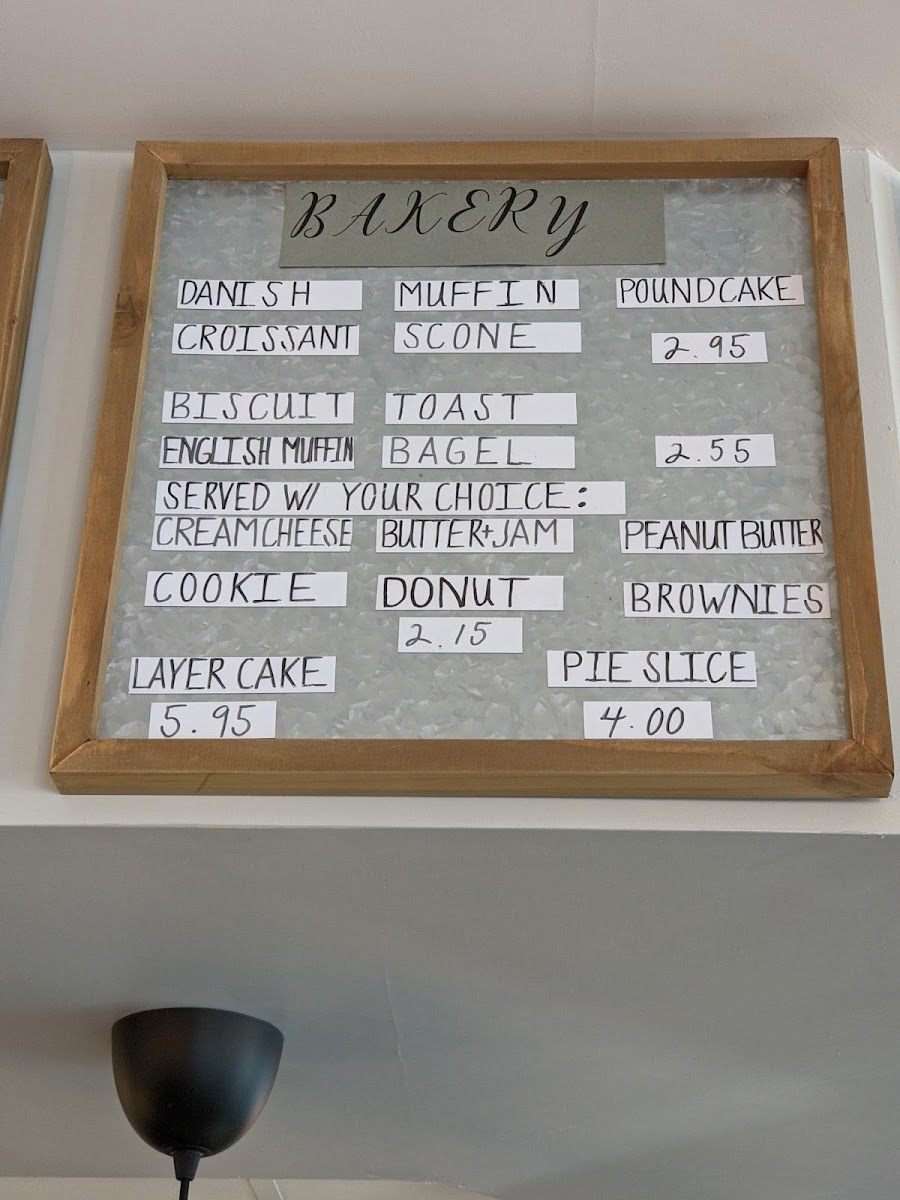 BAKERY
DANISH MUFFIN POUNDCAKE
CROISSANT SCONE 2.95
BISCUIT TOAST
ENGLISH MUFFIN BAGEL 2.55
SERVED W/ YOUR CHOICE:
CREAMCHEESE BUTTER+JAM PEANUT BUTTER
COOKIE DONUT BROWNIES
2.15
LAYER CAKE PIE SLICE
5.95 4.00